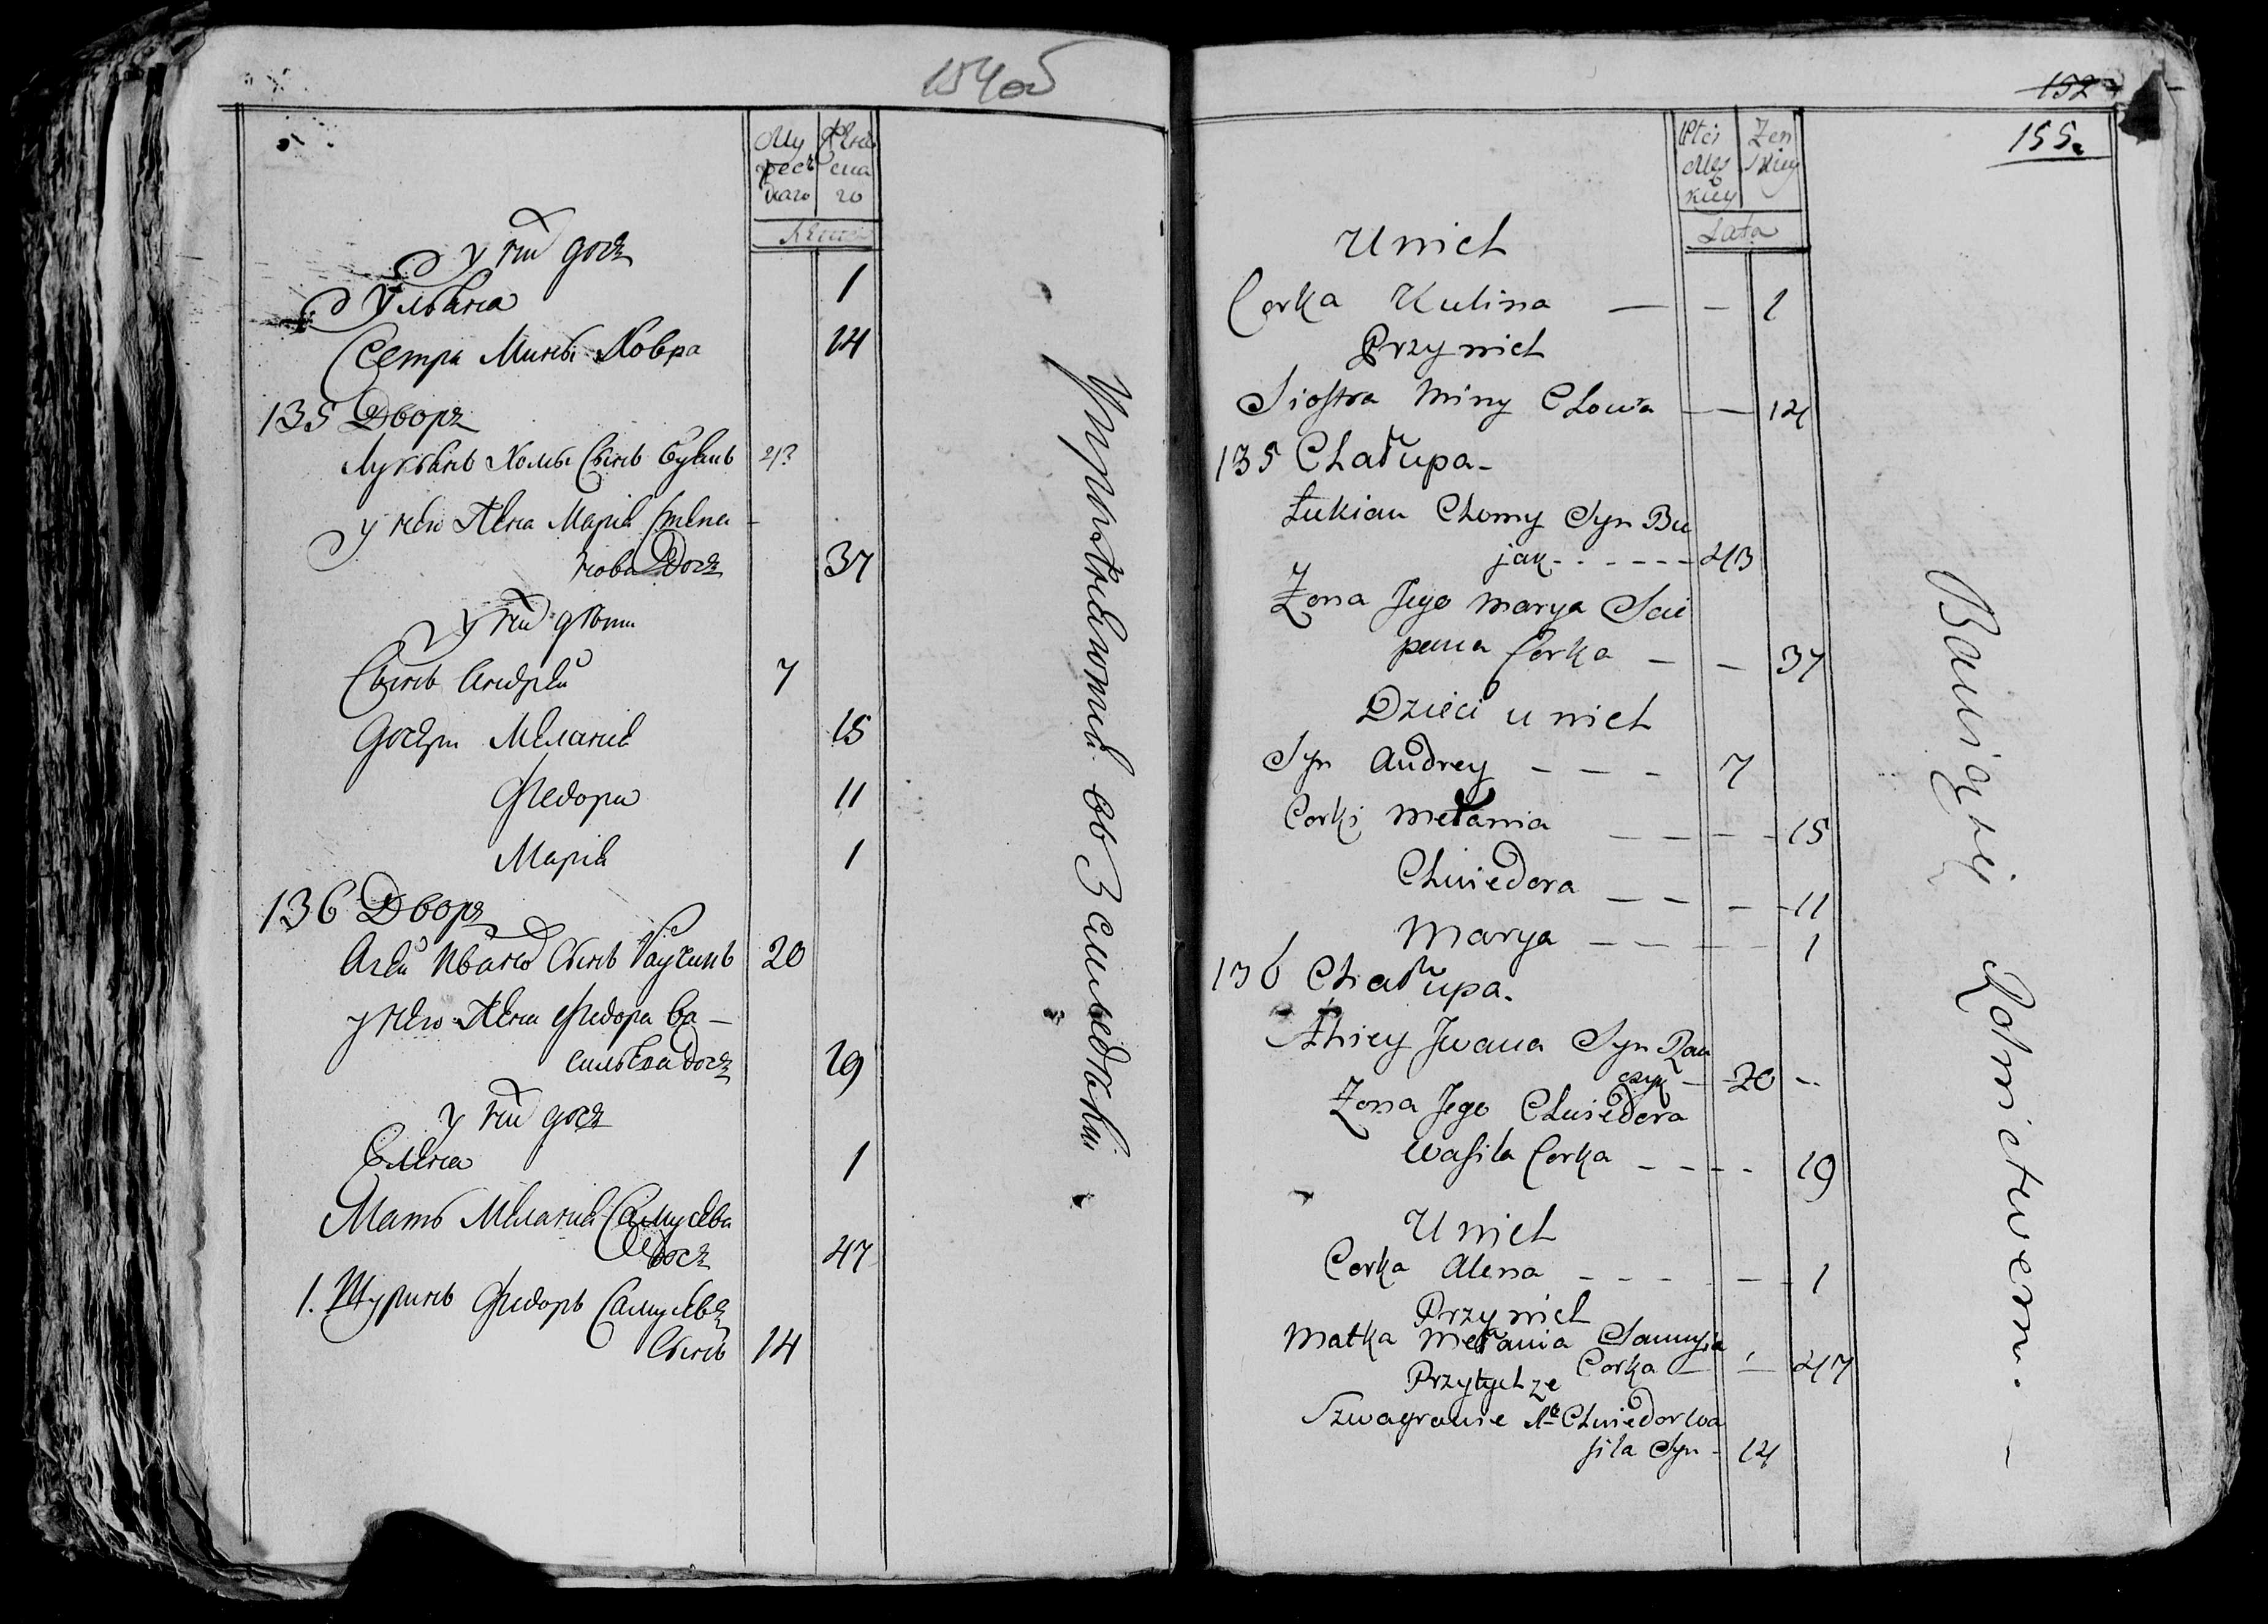 154об
Му
жеск
каго
Жен
ска
го
Лета
у ни дочъ
Ульяна 1
Сетра Мины Ховра 14
135 Дворъ
Лукьянъ Хомы Сынъ Буякъ 43
у нево Жена Мария Степа
нова Дочъ 37
у ни дѣти
Сынъ Андрей 7
дочери Мелания 15
Федора 11
Мария 1
136 Дворъ
Агей Ивана Сынъ Раучикъ 20
у нево Жена Федора Ва—
сильева дочъ 19
у ни дочъ
Елена 1
Мать Мелания Самусева
дочъ 47
1. Шуринъ Федоръ Самусевъ
Сынъ 14
Упражнаютца въ Земледелии
152
155.
Płci
Męs
kiey
Żen
skiey
Lata
U nich
Corka Kulina — — 1
Przy nich
Siostra Miny Chowra — — 14
135 Chałupa -
Łukian Chomy Syn Bu
jak - - - - - - 43
Zona Jego Marya Scie
pana Corka — — 37
Dzieci u nich
Syn Andrey — — — 7
Corki Mełania — — — — 15
Chwiedora — — — — 11
Marya — — — — 1
136 Chałupa.
Ahiey Jwana Syn Rau
czyk — 20 --
Zona Jego Chwiedora
Wasila Corka — — — — 19
U nich
Corka Alena — — — — — 1
Przy nich
Matka Mełania Samusia
Corka — — 47
Przytych ze
Szwagrowie Chwiedor Wa
sila Syn - 14
Bawią się Rolnictwem. —